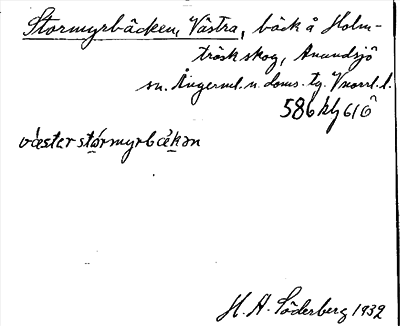 Stormyrbäcken, Västra, bäck å Holm-
träsk skog, Anundsjö
sn. Ångerml. n. doms. tg. Vnorrl. l.
586 klg 616
väster stórmyrbäkən
H. A. Söderberg 1932